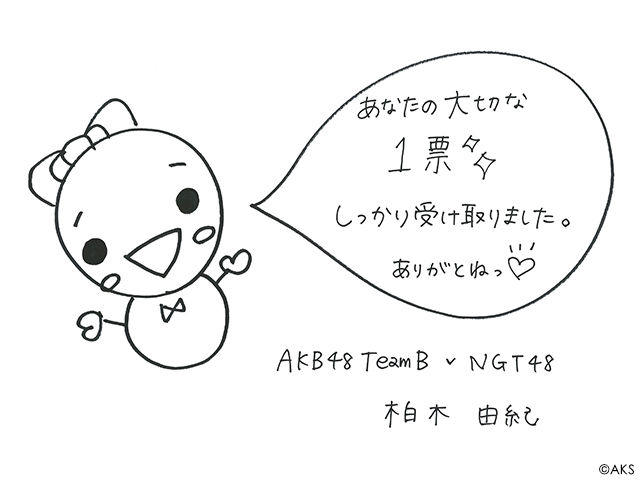 あなたの大切な
1票
しっかり受け取りました。
ありがとねっ♡
AKB48 TeamB ・ NGT48
柏木 由紀
©AKS